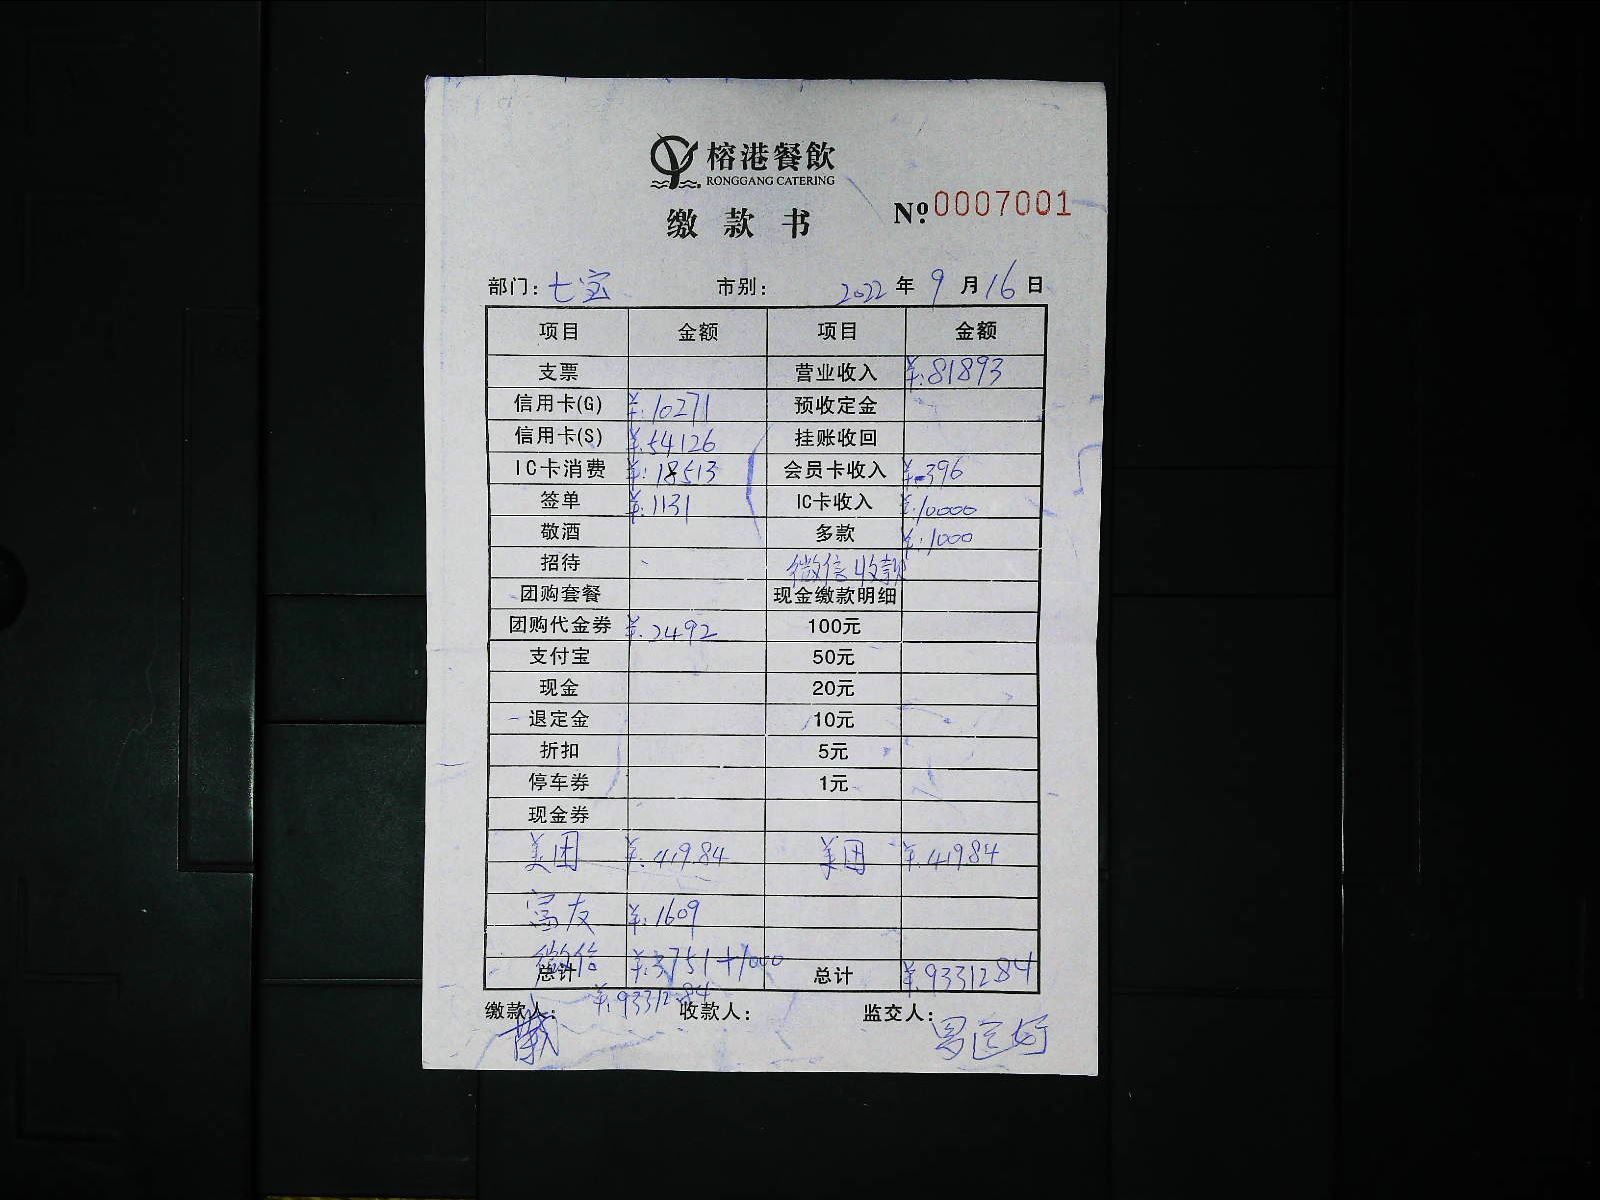 榕港餐飲
RONGGANG CATERING
缴款书
№ 0007001
部门：七宝 市别： 2022 年 9 月 16 日
项目 金额 项目 金额
支票 营业收入 ¥:81893
信用卡(G) ¥:10271 预收定金
信用卡(S) ¥:54126 挂账收回
IC卡消费 ¥:18513 会员卡收入 ¥.-396
签单 ¥:1131 IC卡收入 ¥:10000
敬酒 多款 ¥:1000
招待 微信收款
团购套餐 现金缴款明细
团购代金券 ¥:2492 100元
支付宝 50元
现金 20元
退定金 10元
折扣 5元
停车券 1元
现金券
美团 ¥:419.84 美团 ¥:419.84
富友 ¥:1609
微信 ¥:3751+1000
总计 ¥:93312.84 总计 ¥:93312.84
缴款人： 收款人： 监交人：